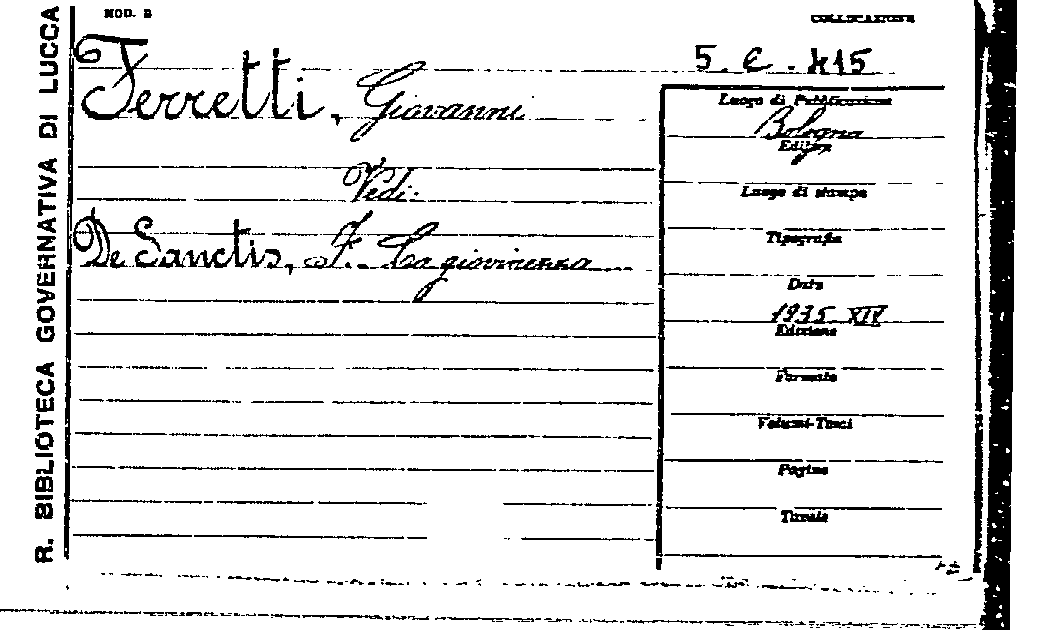 R. BIBLIOTECA GOVERNATIVA DI LUCCA
MOD. 2
COLLOCAZIONE
5. C. 415
Ferretti, Giovanni
Vedi:
De Sanctis, F. La giovinezza
Luogo di Pubblicazione
Bologna
Editore
Luogo di stampa
Tipografia
Data
1935 XIV
Edizione
Formato
Volumi-Tomi
Pagine
Tavole